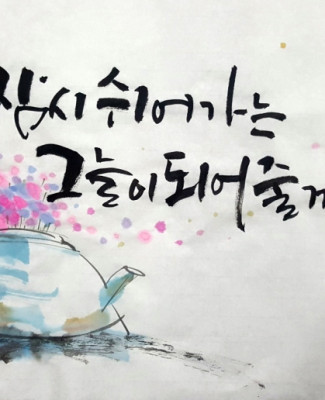 잠시 쉬어가는
그늘이 되어 줄게